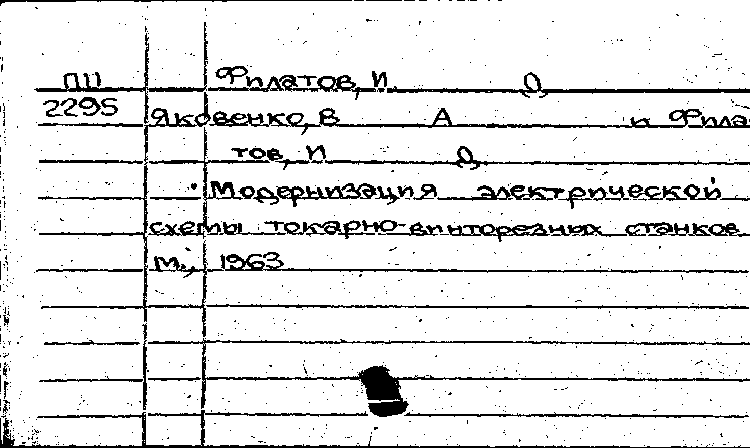 ПШ Филатов, И. О.
2295 Яковенко, В А и Фила-
тов, И О.
Модернизация электрической
схемы токарно-винторезных станков
М., 1963